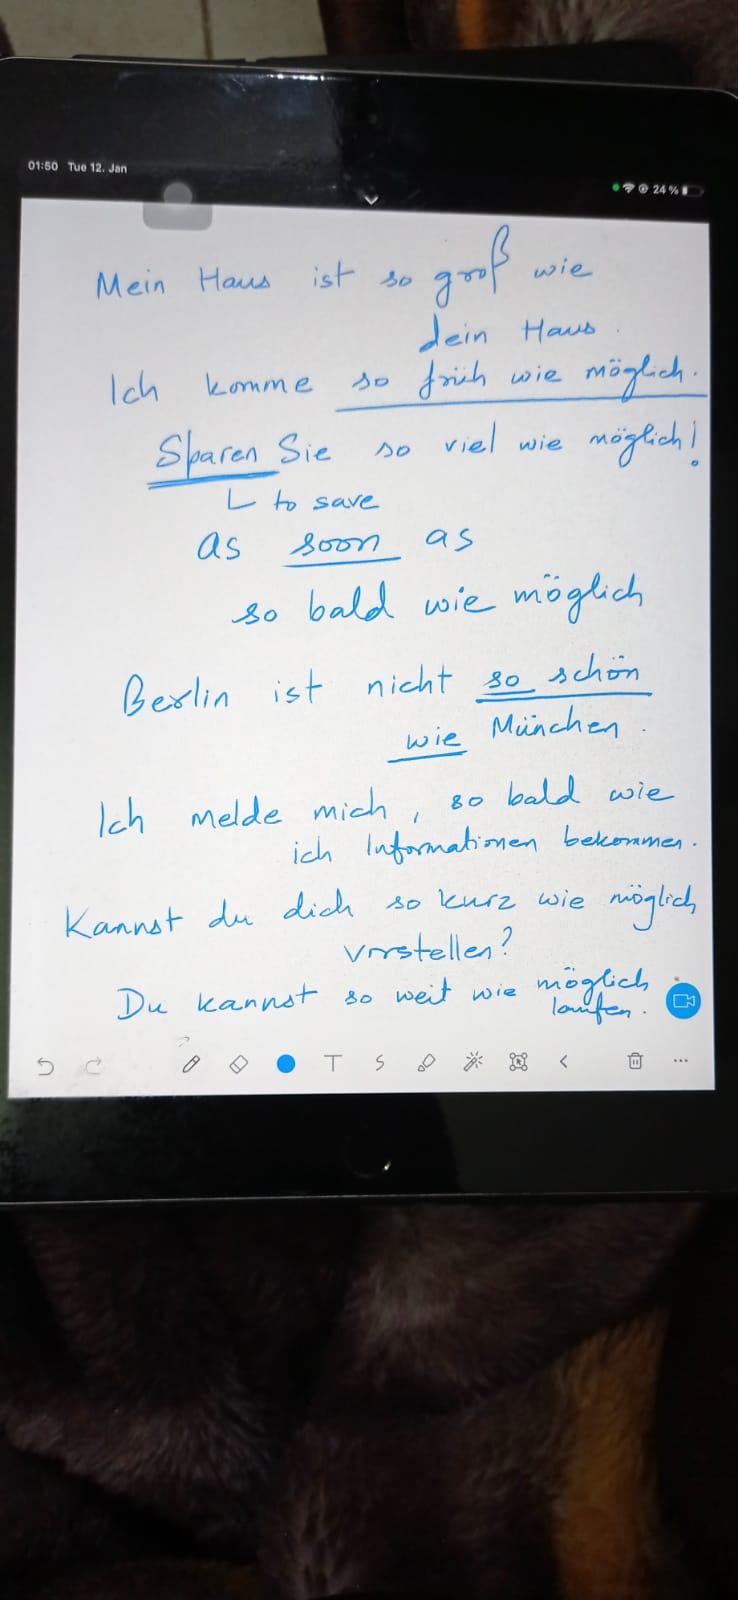 01:50 Tue 12. Jan
24 %
Mein Haus ist so groß wie
dein Haus.
Ich komme so früh wie möglich.
Sparen Sie so viel wie möglich!
to save
as soon as
so bald wie möglich
Berlin ist nicht so schön
wie München.
Ich melde mich, so bald wie
ich Informationen bekommen.
Kannst du dich so kurz wie möglich
vorstellen?
Du kannst so weit wie möglich
laufen.
T